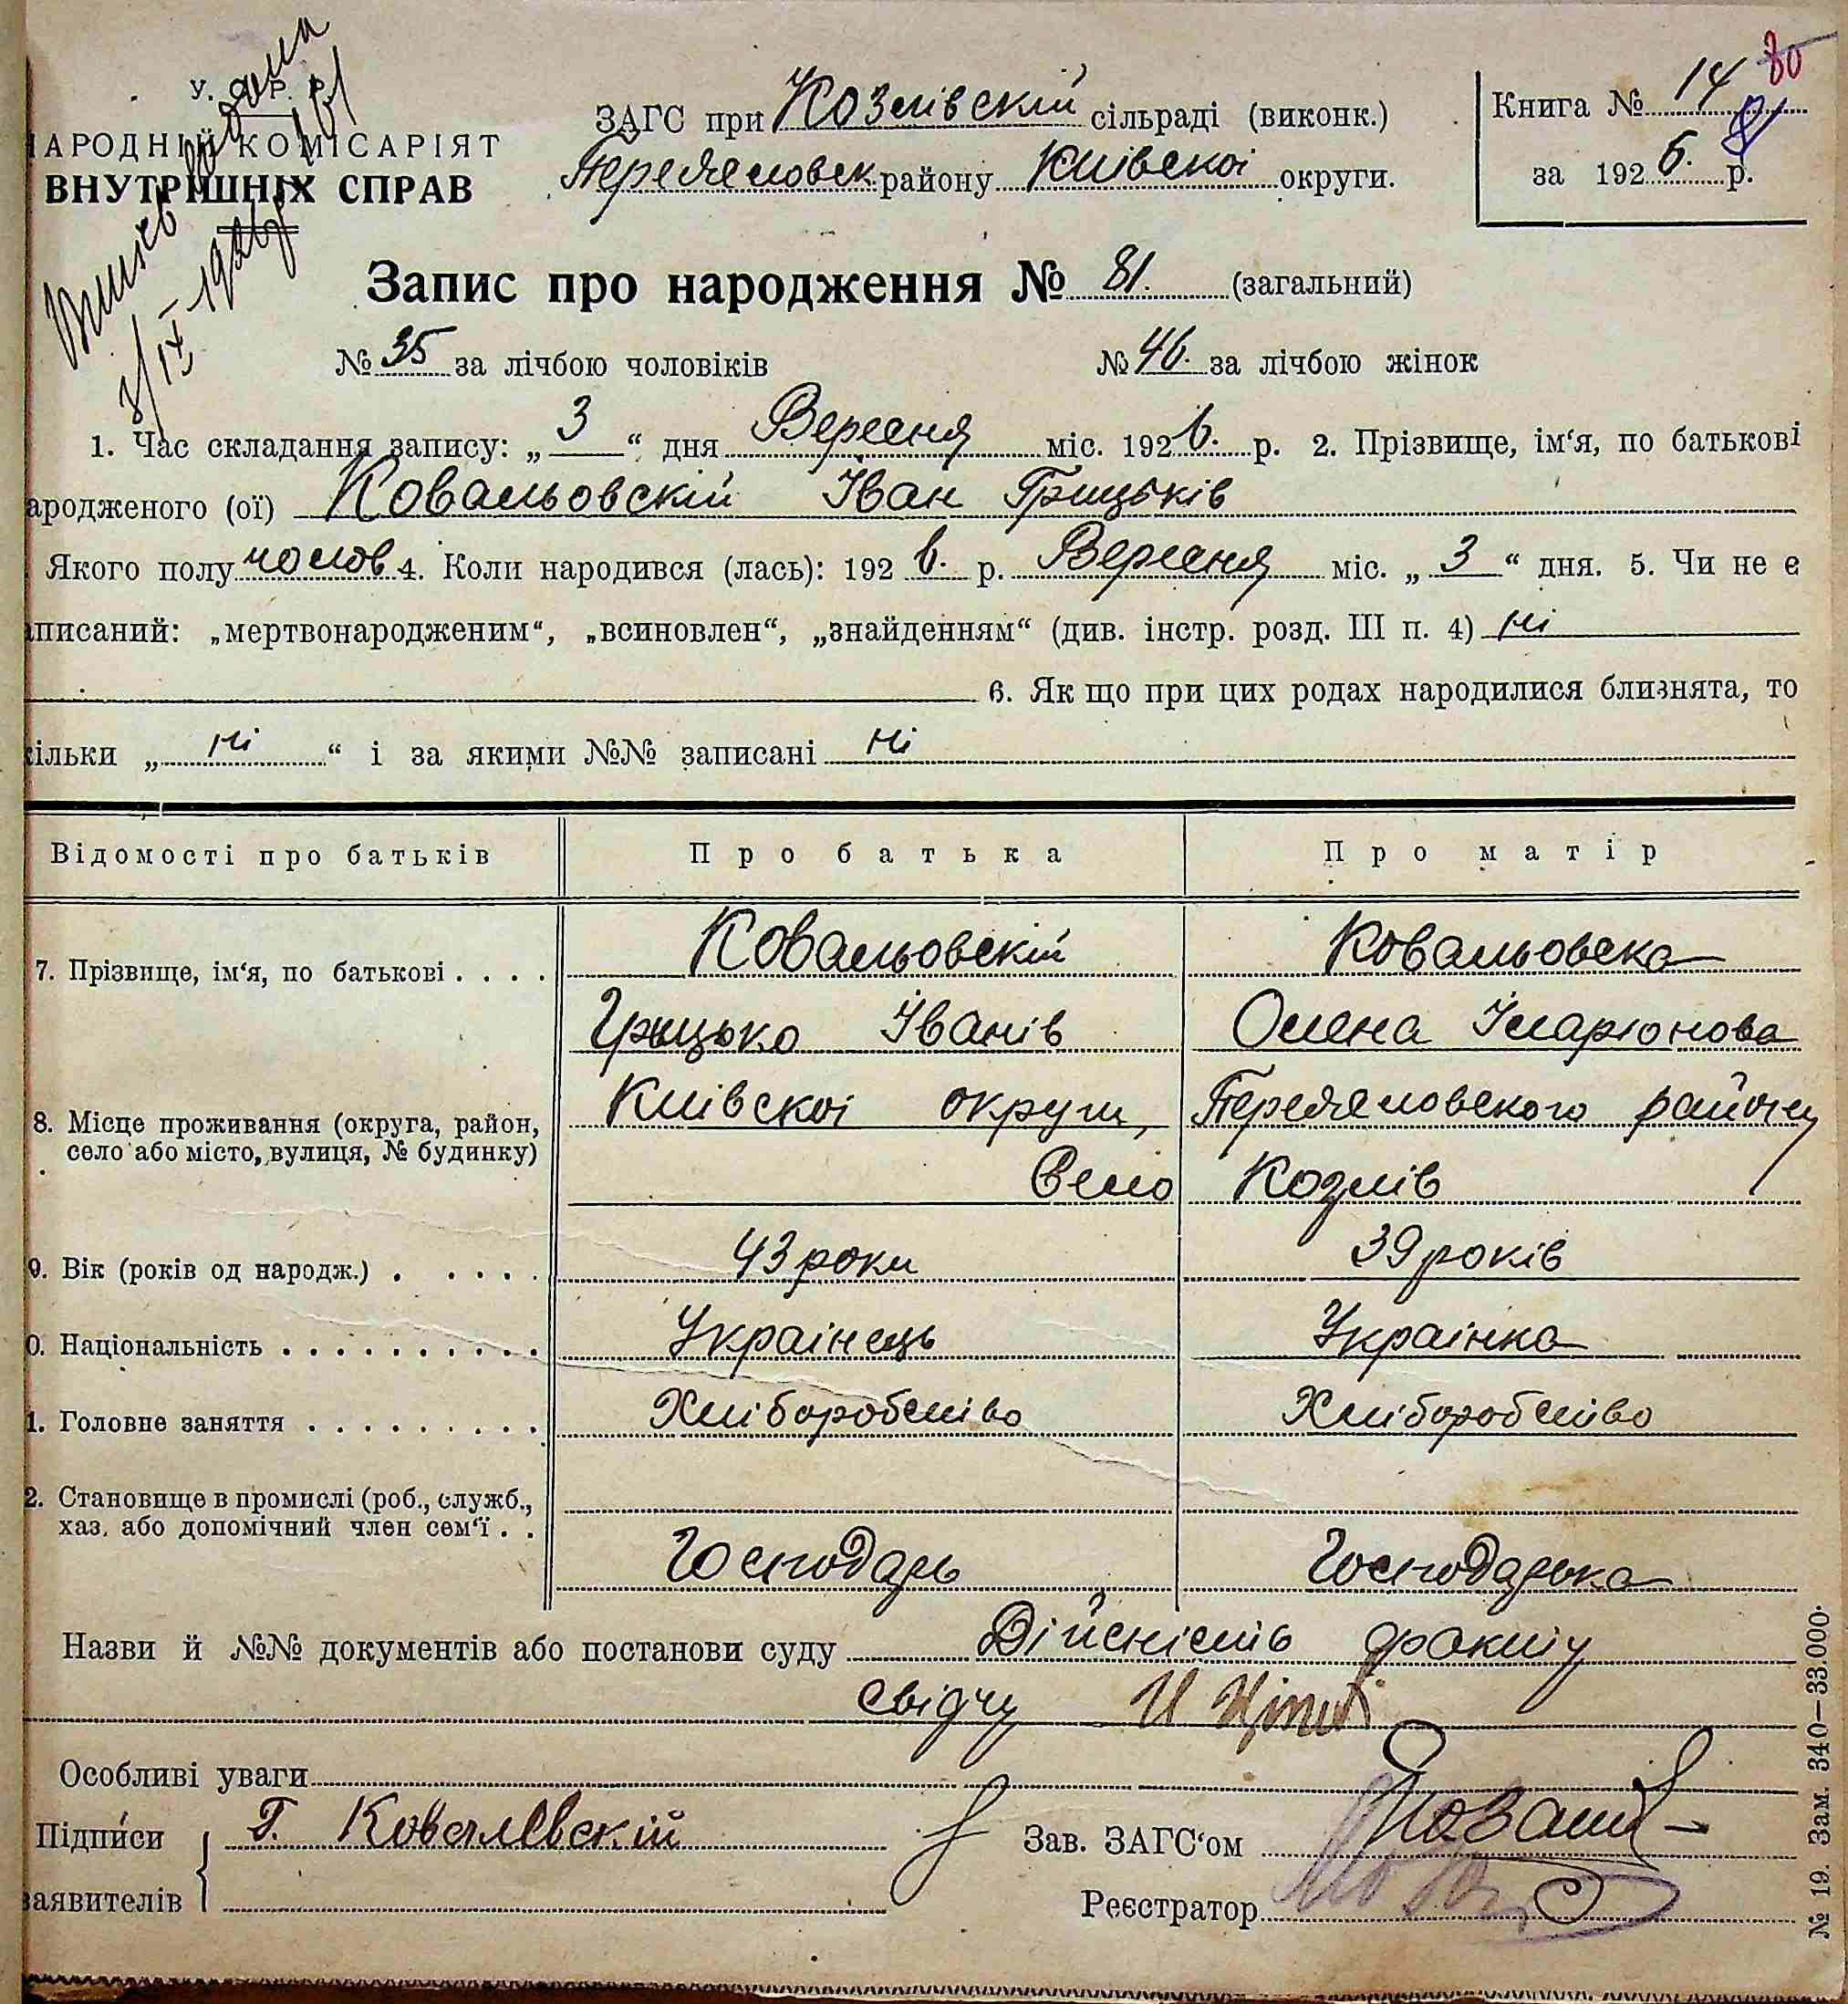 80
У. С. Р. Р.
НАРОДНІЙ КОМІСАРІЯТ
ВНУТРІШНІХ СПРАВ
Витяг видана
3/IX 1926 р. 161
ЗАГС при Козлівскій сільраді (виконк.)
Переясловск. району Київскоі округи.
Книга № 14
за 192 6. р.
Запис про народження № 81. (загальний)
№ 35 за лічбою чоловіків № 46. за лічбою жінок
1. Час складання запису: „ 3 “ дня Вересня міс. 192 6. р. 2. Прізвище, ім‘я, по батькові
ародженого (ої) Ковальовскій Іван Грицьків
Якого полу чолов 4. Коли народився (лась): 192 6. р. Вересня міс. „ 3 “ дня. 5. Чи не є
писаний: „мертвонародженим“, „всиновлен“, „знайденням“ (див. інстр. розд. III п. 4) ні
6. Як що при цих родах народилися близнята, то
кільки „ ні “ і за якими №№ записані ні
Відомості про батьків Про батька Про матір
7. Прізвище, ім‘я, по батькові . . . . Ковальовскій Ковальовска
Грыцько Іванів Олена Іларіонова
8. Місце проживання (округа, район, село або місто, вулиця, № будинку) Київскоі округи, Переясловского району
Село Козлів
9. Вік (років од народж.) . . . . . 43 роки 39 років
0. Національність . . . . . . . . . . Украінець Украінка
1. Головне заняття . . . . . . . . . Хліборобство Хліборобство
2. Становище в промислі (роб., служб., хаз. або допомічний член сем‘ї . .
Господарь Господарька
Назви й №№ документів або постанови суду Дійсність факту
свідчу И
Особливі уваги
Підписи Г. Ковалевскій Зав. ЗАГС‘ом
заявителів Реєстратор
№ 19. Зам. 340—33.000.